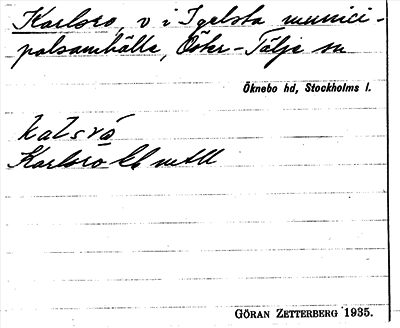 Karlsro, v i Igelsta munici-
palsamhälle, Öster-Tälje sn
Öknebo hd, Stockholms l.
Karlsro
GÖRAN ZETTERBERG 1935.